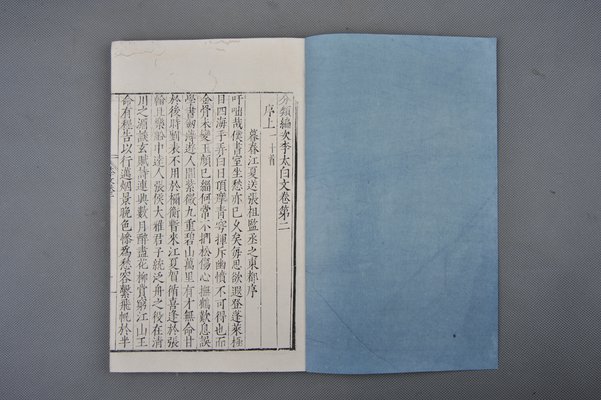 分類編次李太白文卷第二
序上 二十首
暮春江夏送張祖監丞之東都序
吁咄哉僕書室坐愁亦已久矣每思欲遐登蓬萊極
目四海手弄白日頂摩青穹揮斥幽憤不可得也而
金骨未變玉顏已緇何常不捫松傷心撫鶴歎息誤
學書劍薄遊人間紫微九重碧山萬里有才無命甘
於後時劉表不用於禰衡暫來江夏賀循喜逢於張
翰且樂船中達人張侯大雅君子統泛舟之役在清
川之湄談玄賦詩連興數月醉盡花柳賞窮江山王
命有程告以行邁烟景晚色慘為愁容繫飛帆於半